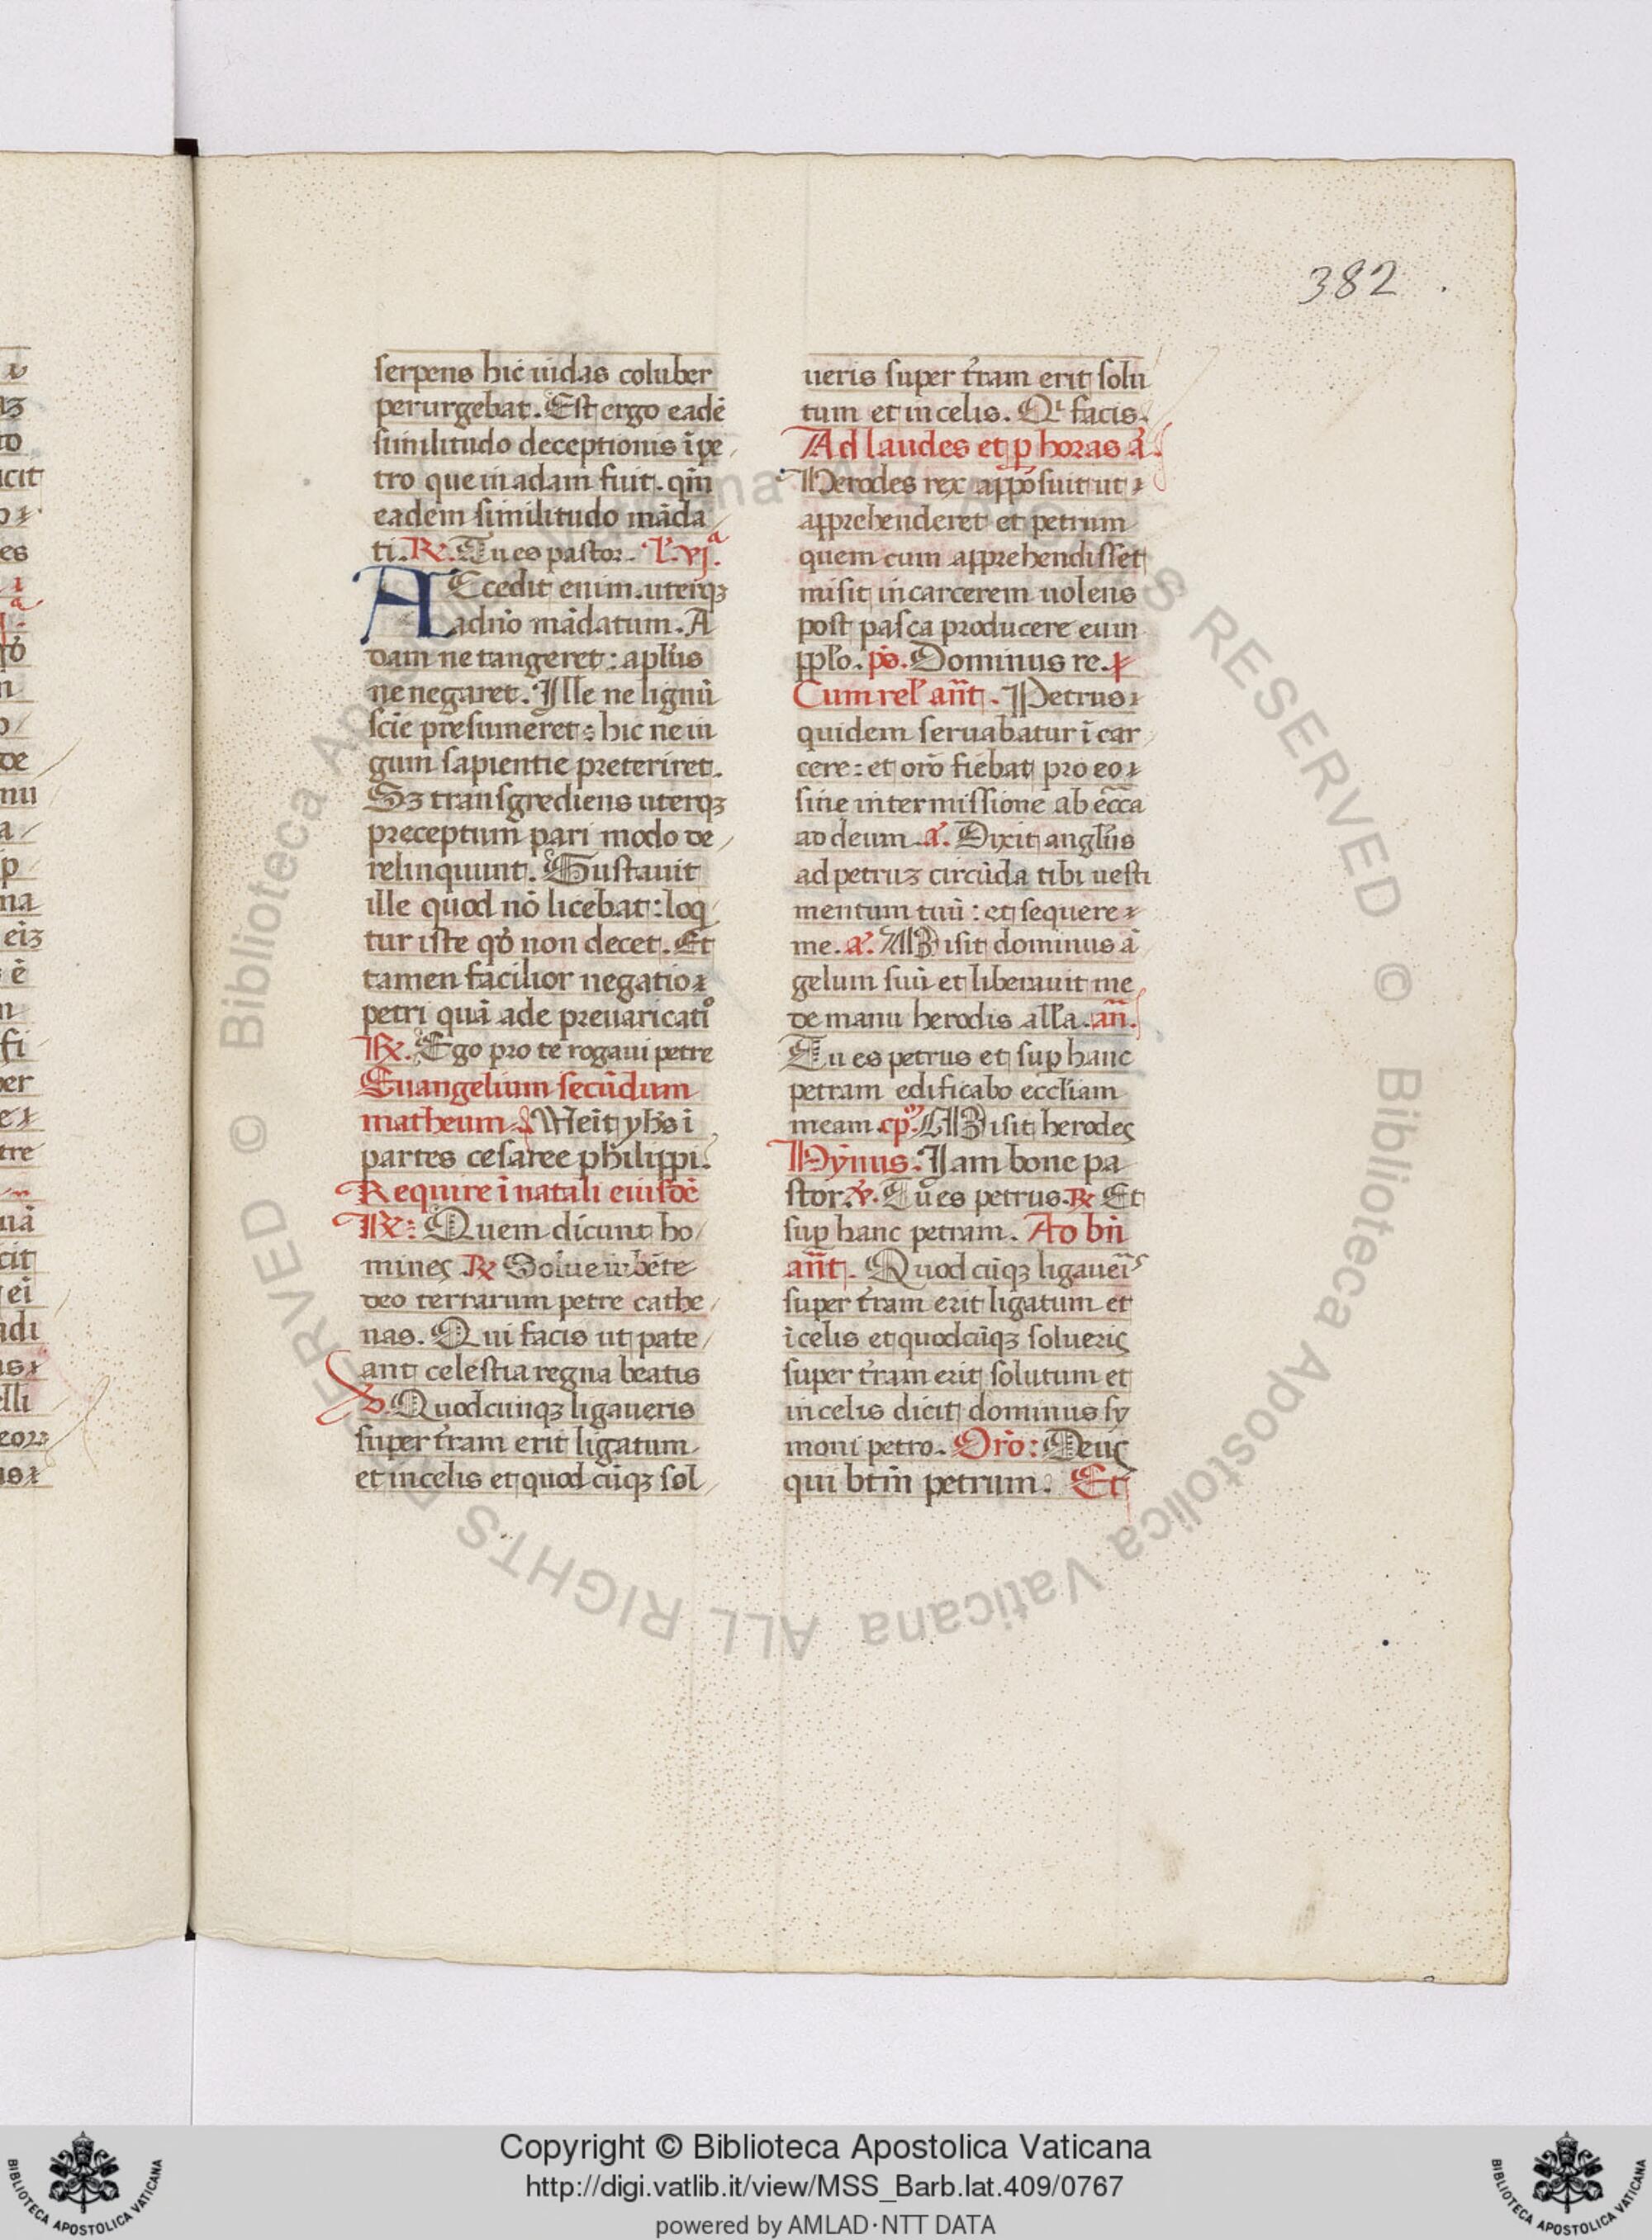 382
serpens hic iudas coluber
perurgebat. Est ergo eadē
similitudo deceptionis ī pe
tro que in adam fuit. qm̄
eadem similitudo māda
ti. ℟. Tu es pastor. l'. vjᵃ.
ACcedit enim. uterqꝫ
ad nō mādatum. A
dam ne tangeret: apl'us
ne negaret. Ille ne lignū
scīe presumeret: hic ne in
gum sapientie preteriret.
Sꝫ transgrediens uterqꝫ
preceptum pari modo de
relinquunt. Gustauit
ille quod nō licebat: loq
tur iste qđ non decet. Et
tamen facilior negatio
petri quā ade preuaricatio
℟. Ego pro te rogaui petre
Euangelium secūdum
matheum. Ueīt yh's ī
partes cesaree philippi.
Require ī natali eiusdē
℟: Quem dicunt ho
mines ℟ Solue iubēte
deo terrarum petre cathe
nas. Qui facis ut pate
ant celestia regna beatis
℣. Quodcunqꝫ ligaueris
super t'ram erit ligatum
et in celis et quodcūqꝫ sol
ueris super t'ram erit solu
tum et in celis. Qi facis.
Ad laudes et ꝑ horas ā.
Herodes rex apposuit ut
apprehenderet et petrum
quem cum apprehendisset
misit in carcerem uolens
post pasca producere eum
ppl'o. pš. Dominus re.
Cum rel' ant̄. Petrus
quidem seruabatur ī car
cere: et orō fiebat pro eo
sine intermissione ab ecc̄a
ad deum. ā. Dixit angl'us
ad petruꝫ circūda tibi uesti
mentum tuū: et sequere
me. ā. Misit dominus ā
gelum suū et liberauit me
de manu herodis all'a. an̄.
Tu es petrus et suꝑ hanc
petram edificabo eccl'iam
meam. cp̄. Misit herodes
Hȳnus. Iam bone pa
stor. ℣. Tu es petrus. ℟ Et
suꝑ hanc petram. Ad bn̄
ant̄. Quodcūqꝫ ligaueīs
super t'ram erit ligatum et
ī celis et quodcūqꝫ solueris
super t'ram erit solutum et
in celis dicit dominus sy
moni petro. Orō: Deus
qui btm̄ petrum. Et
© Biblioteca Apostolica Vaticana ALL RIGHTS RESERVED © Biblioteca Apostolica Vaticana ALL RIGHTS RESERVED
Copyright © Biblioteca Apostolica Vaticana
http://digi.vatlib.it/view/MSS_Barb.lat.409/0767
powered by AMLAD·NTT DATA
BIBLIOTECA APOSTOLICA VATICANA
BIBLIOTECA APOSTOLICA VATICANA